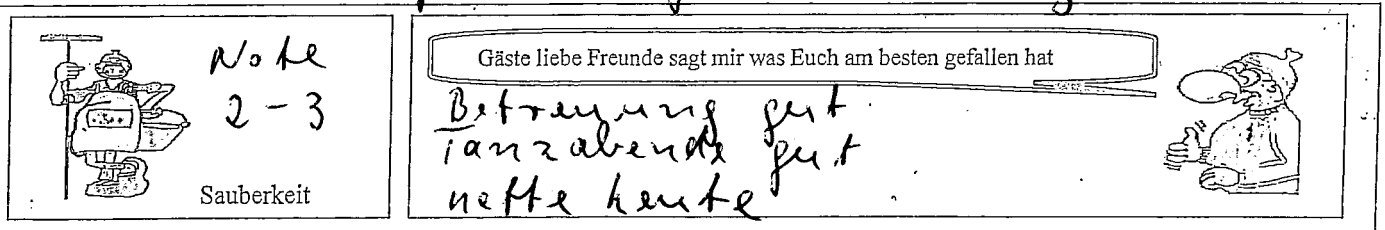 Note
2 - 3
Sauberkeit
Gäste liebe Freunde sagt mir was Euch am besten gefallen hat
Betreuung gut
Tanzabende gut
nette Leute